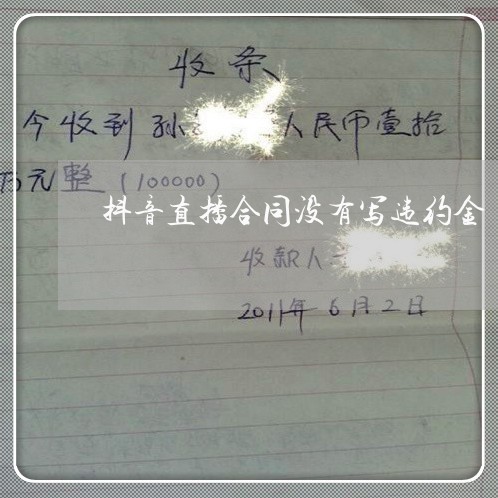 收条
今收到孙 人民币壹拾
万元整(100000)
抖音直播合同没有写违约金
收款人
2011年6月2日